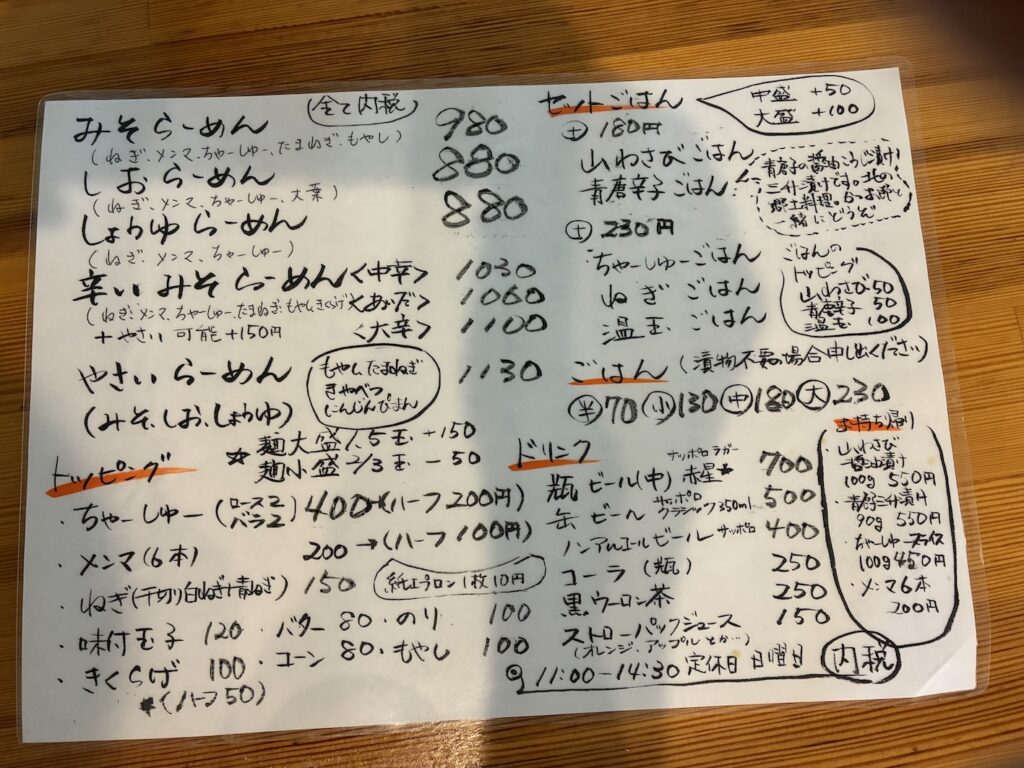 (全て内税)
みそらーめん 980
(ねぎ、メンマ、ちゃーしゅー、たまねぎ、もやし)
しおらーめん 880
(ねぎ、メンマ、ちゃーしゅー、大葉)
しょうゆらーめん 880
(ねぎ、メンマ、ちゃーしゅー)
辛いみそらーめん <中辛> 1030
(ねぎ、メンマ、ちゃーしゅー、たまねぎ、もやし、きくらげ 1060
+やさい 可能 +150円 <大辛> 1100
やさいらーめん 1130
(みそ、しお、しょうゆ)
もやし、たまねぎ
きゃべつ
にんじん、ぴーまん
☆ 麺大盛 1.5玉 +150
麺小盛 2/3玉 -50
トッピング
・ちゃーしゅー (ロース2 バラ2) 400 (ハーフ 200円)
・メンマ(6本) 200 →(ハーフ 100円)
・ねぎ(千切り白ねぎ+青ねぎ) 150
紙エプロン1枚10円
・味付玉子 120 ・バター 80 ・のり 100
・きくらげ 100 ・コーン 80 ・もやし 100
(ハーフ 50)
セットごはん
中盛 +50
大盛 +100
(+) 180円
山わさびごはん
青唐辛子ごはん
青唐辛子の醤油こうじ漬け
三升漬けです。北の
郷土料理。
緒にどうぞ
(+) 230円
ちゃーしゅーごはん
ねぎごはん
温玉ごはん
ごはんの
トッピング
山わさび 50
青唐辛子 50
温玉 100
ごはん (漬物不要の場合申し出ください)
(半)70 (小)130 (中)180 (大)230
ドリンク
瓶ビール(中) サッポロラガー 赤星★ 700
缶ビール サッポロ クラシック350ml 500
ノンアルコールビール サッポロ 400
コーラ (瓶) 250
黒ウーロン茶 250
ストローパックジュース 150
(オレンジ、アップルとか…)
お持ち帰り
・山わさび
醤油漬け
100g 550円
・青唐三升漬け
90g 550円
・ちゃーしゅースライス
100g 450円
・メンマ6本
200円
11:00-14:30 定休日 日曜日
内税